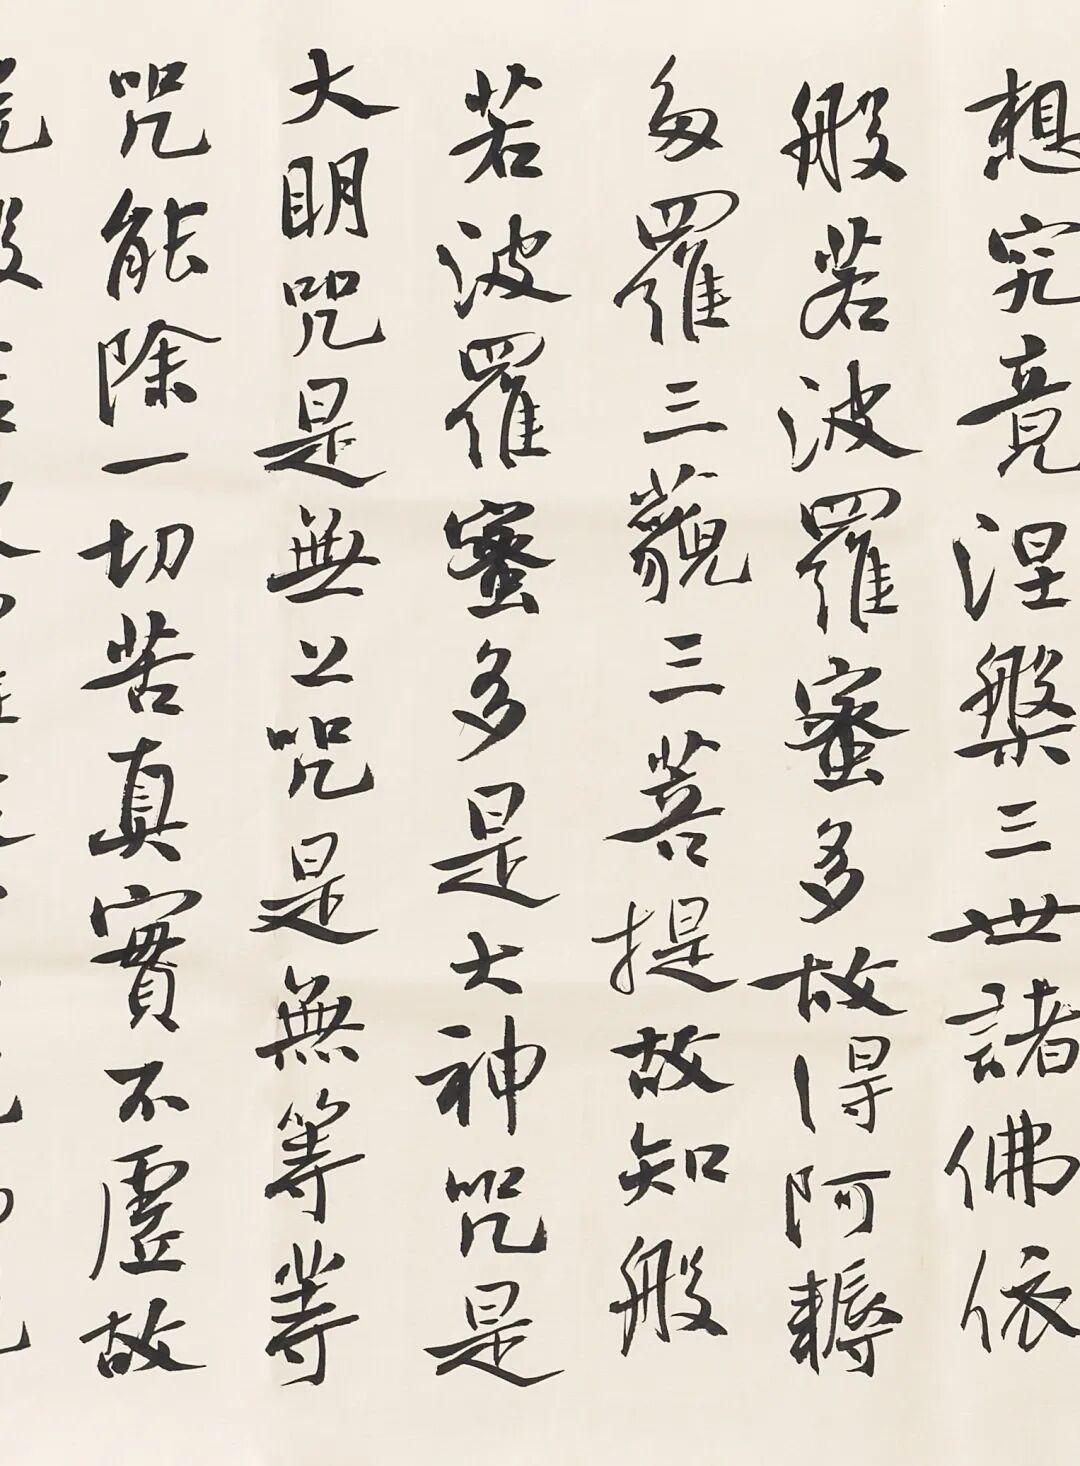 想究竟涅槃三世諸佛依
般若波羅蜜多故得阿耨
多羅三藐三菩提故知般
若波羅蜜多是大神咒是
大明咒是無上咒是無等等
咒能除一切苦真實不虛故